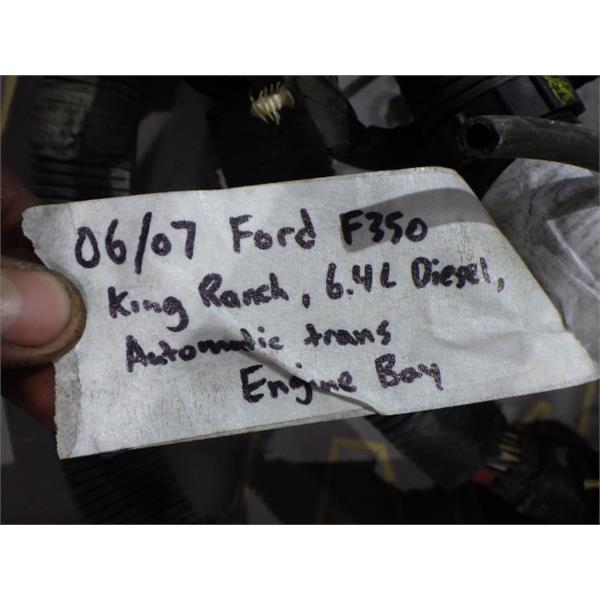 06/07 Ford F350
King Ranch, 6.4L Diesel,
Automatic trans
Engine Bay